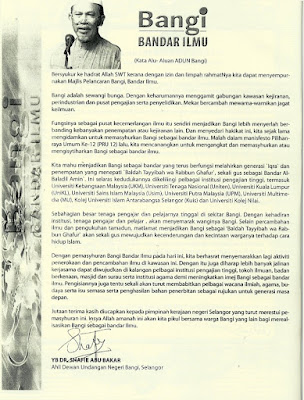 Bangi
BANDAR ILMU
(Kata Alu- Aluan ADUN Bangi)
Bersyukur ke hadrat Allah SWT kerana dengan izin dan limpah rahmatNya kita dapat menyempur-
nakan Majlis Pelancaran Bangi, Bandar Ilmu.
Bangi adalah sewangi bunga. Dengan keharumannya menggamit gabungan kawasan kejiranan,
perindustrian dan pusat pengajian serta penyelidikan. Mekar bercambah mewarna-warnikan jagat
keilmuan.
Fungsinya sebagai pusat kecemerlangan ilmu itu sendiri menjadikan Bangi lebih menyerlah ber-
banding kebanyakan penempatan atau kejiranan lain. Dan menyedari hakikat ini, kita sejak lama
mengidamkan untuk memasyhurkan Bangi sebagai bandar ilmu. Malah dalam manifesto Pilihan-
raya Umum Ke-12 (PRU 12) lalu, kita mencanangkan untuk mengangkat dan memasyhurkan atau
mengisytiharkan Bangi sebagai bandar ilmu.
Kita mahu menjadikan Bangi sebagai bandar yang terus berfungsi melahirkan generasi 'Iqra' dan
penempatan yang menepati 'Baldah Tayyibah wa Rabbun Ghafur', sekali gus sebagai Bandar Al-
Baladil Amin. Ini selaras kedudukannya dikelilingi pelbagai institusi pengajian tinggi, termasuk
Universiti Kebangsaan Malaysia (UKM), Universiti Tenaga Nasional (Uniten), Universiti Kuala Lumpur
(UniKL), Universiti Sains Islam Malaysia (Usim), Universiti Putra Malaysia (UPM), Universiti Multime-
dia (MU), Kolej Universiti Islam Antarabangsa Selangor (Kuis) dan Universiti Kolej Nilai.
Sebahagian besar tenaga pengajar dan pelajarnya tinggal di sekitar Bangi. Dengan kehadiran
institusi, tenaga pengajar dan pelajar , akan menyemarak wangikan Bangi. Selain percambahan
ilmu dan pengukuhan tamadun, matlamat menjadikan Bangi sebagai 'Baldah Tayyibah wa Rab-
bun Ghafur' akan sekali gus mewujudkan kecenderungan dan kecintaan warganya terhadap cara
hidup Islam.
Dengan pemasyhuran Bangi Bandar Ilmu pada hari ini, kita berhasrat menyemarakkan lagi aktiviti
peneroKaan dan percambahan ilmu di kawasan ini. Dengan itu juga diharap lebih banyak jalinan
kerjasama dapat diwujudkan di kalangan pelbagai institusi pengajian tinggi, tokoh ilmuan, badan
berkenaan, masjid dan surau serta institusi agama demi meningkatkan imej Bangi sebagai bandar
ilmu. Pengisiannya juga tentu sekali akan turut membabitkan pelbagai wacana ilmiah, agama, bu-
daya serta isu semasa serta penghasilan bahan penerbitan sebagai rujukan untuk generasi masa
depan.
Jutaan terima kasih diucapkan kepada pimpinan kerajaan negeri Selangor yang turut merestui pe-
masyhuran ini. Insya Allah amanah ini akan kita pikul bersama warga Bangi yang lain bagi mereal-
isasikan Bangi sebagai bandar ilmu.
YB DR. SHAFIE ABU BAKAR
Ahli Dewan Undangan Negeri Bangi, Selangor